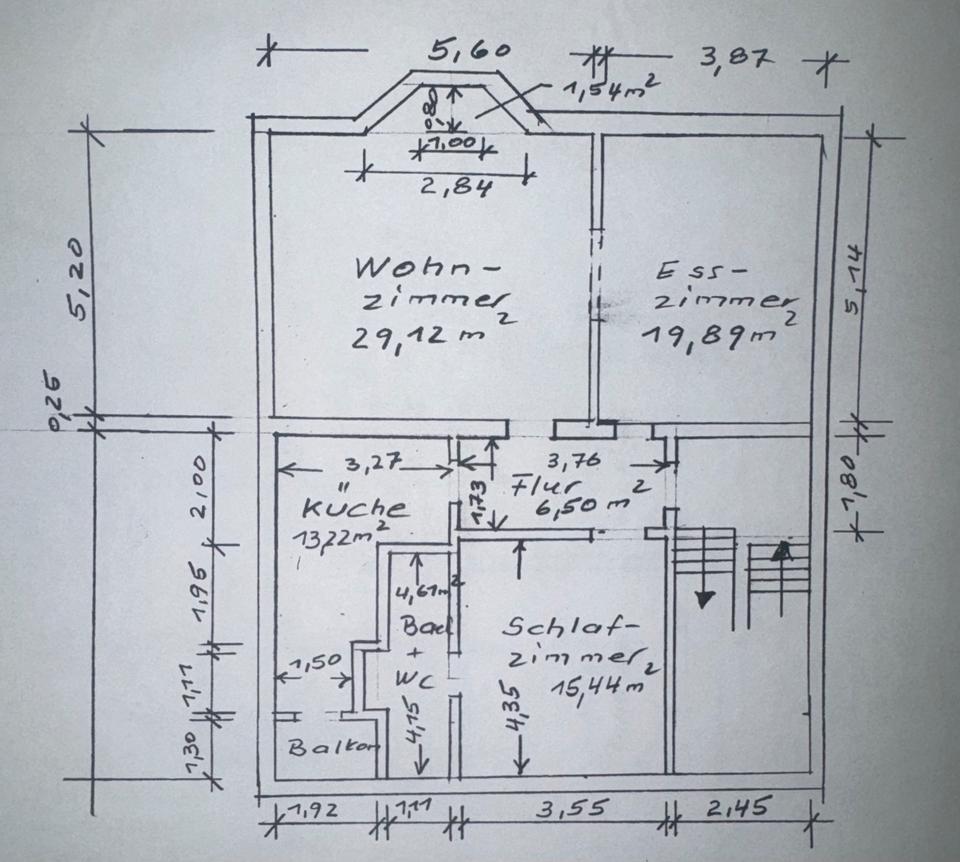 5,60
3,87
1,54m²
0,80
1,00
2,84
Wohn-
zimmer
29,12 m²
Ess-
zimmer
19,89 m²
5,20
5,14
0,25
3,27
3,76
2,00
Küche
13,22m²
1,73
Flur
6,50 m²
1,80
1,95
4,61m²
Bad
+
WC
4,15
Schlaf-
zimmer
15,44m²
4,35
1,50
1,11
Balkon
1,30
1,92
1,11
3,55
2,45